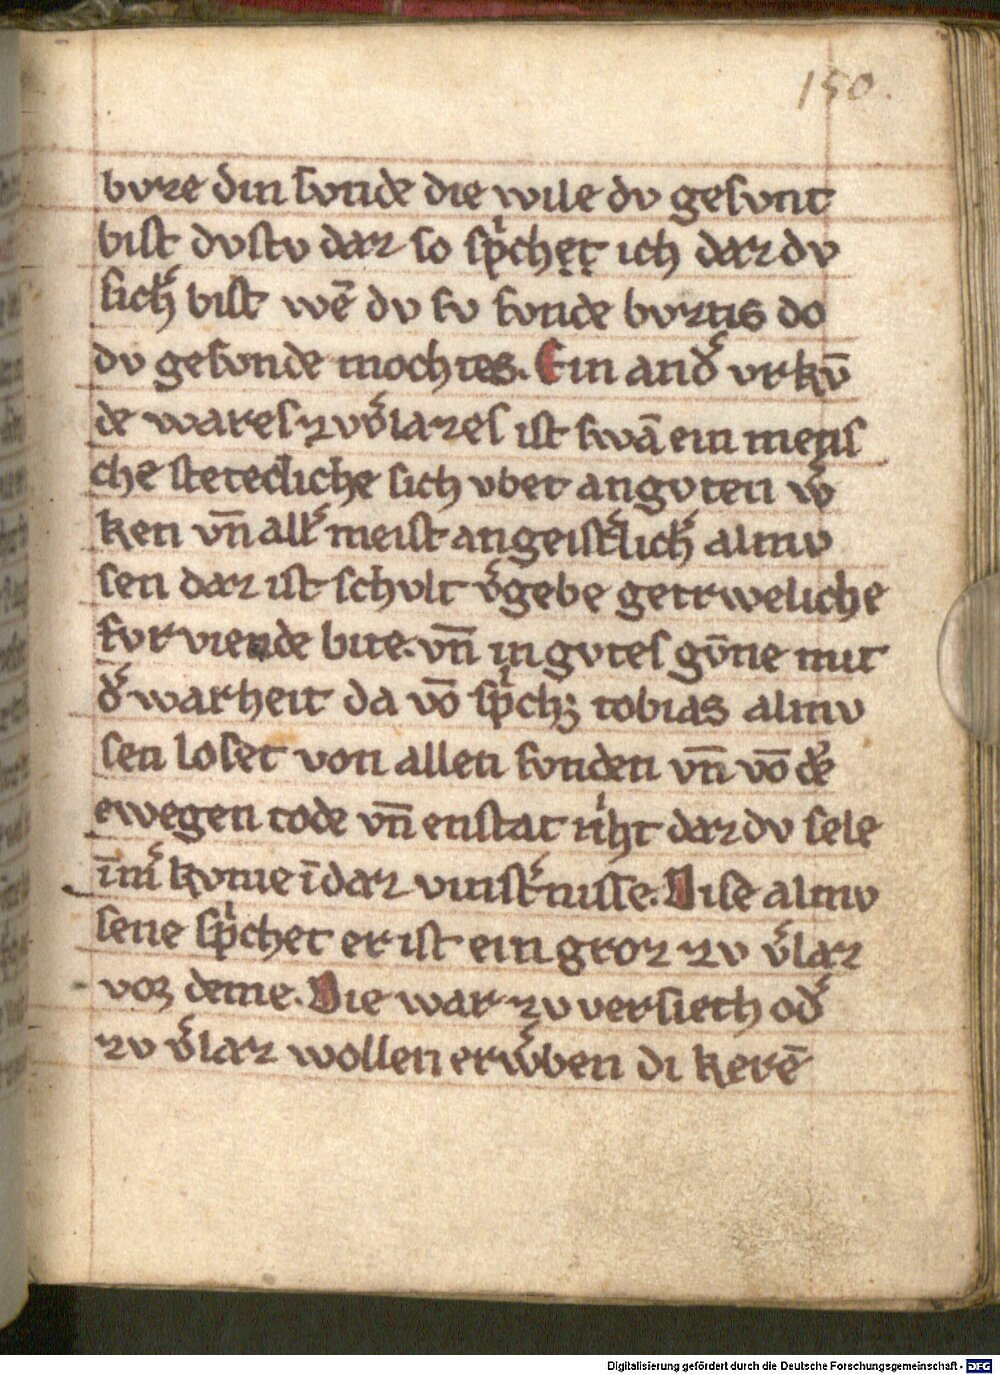 150.
bvze din svnde die wile dv gesvnt
bist dvstv daz so sp͛chet ich daz dv
sich͛ bist wē dv sv svnde bvztis do
dv gesvnde mochtes. Ein and͛ vrkv̄
de wares zv v͛lazes ist swā ein mens
chē stetecliche sich vbet an gvten w͛
ken vn̄ all͛ meist an geist͛lich͛ almv
sen daz ist schvlt v͛gebē getrweliche
fvr viende bite. vn̄ in gvtes gv̄ne mit
d͛ warheit da vō sp͛chꝫ tobias almv
sen loset von allen svnden vn̄ vō dē
ewegen tode vn̄ enstat niht daz dv sele
īm͛ kvme ī daz vinst͛nisse. Dise almv
sene sp͛chet er ist ein groz zv v͛laz
voꝛ deme. Die war zv versieth od͛
zv v͛laz wollen erw͛ben di kerē
Digitalisierung gefördert durch die Deutsche Forschungsgemeinschaft - DFG